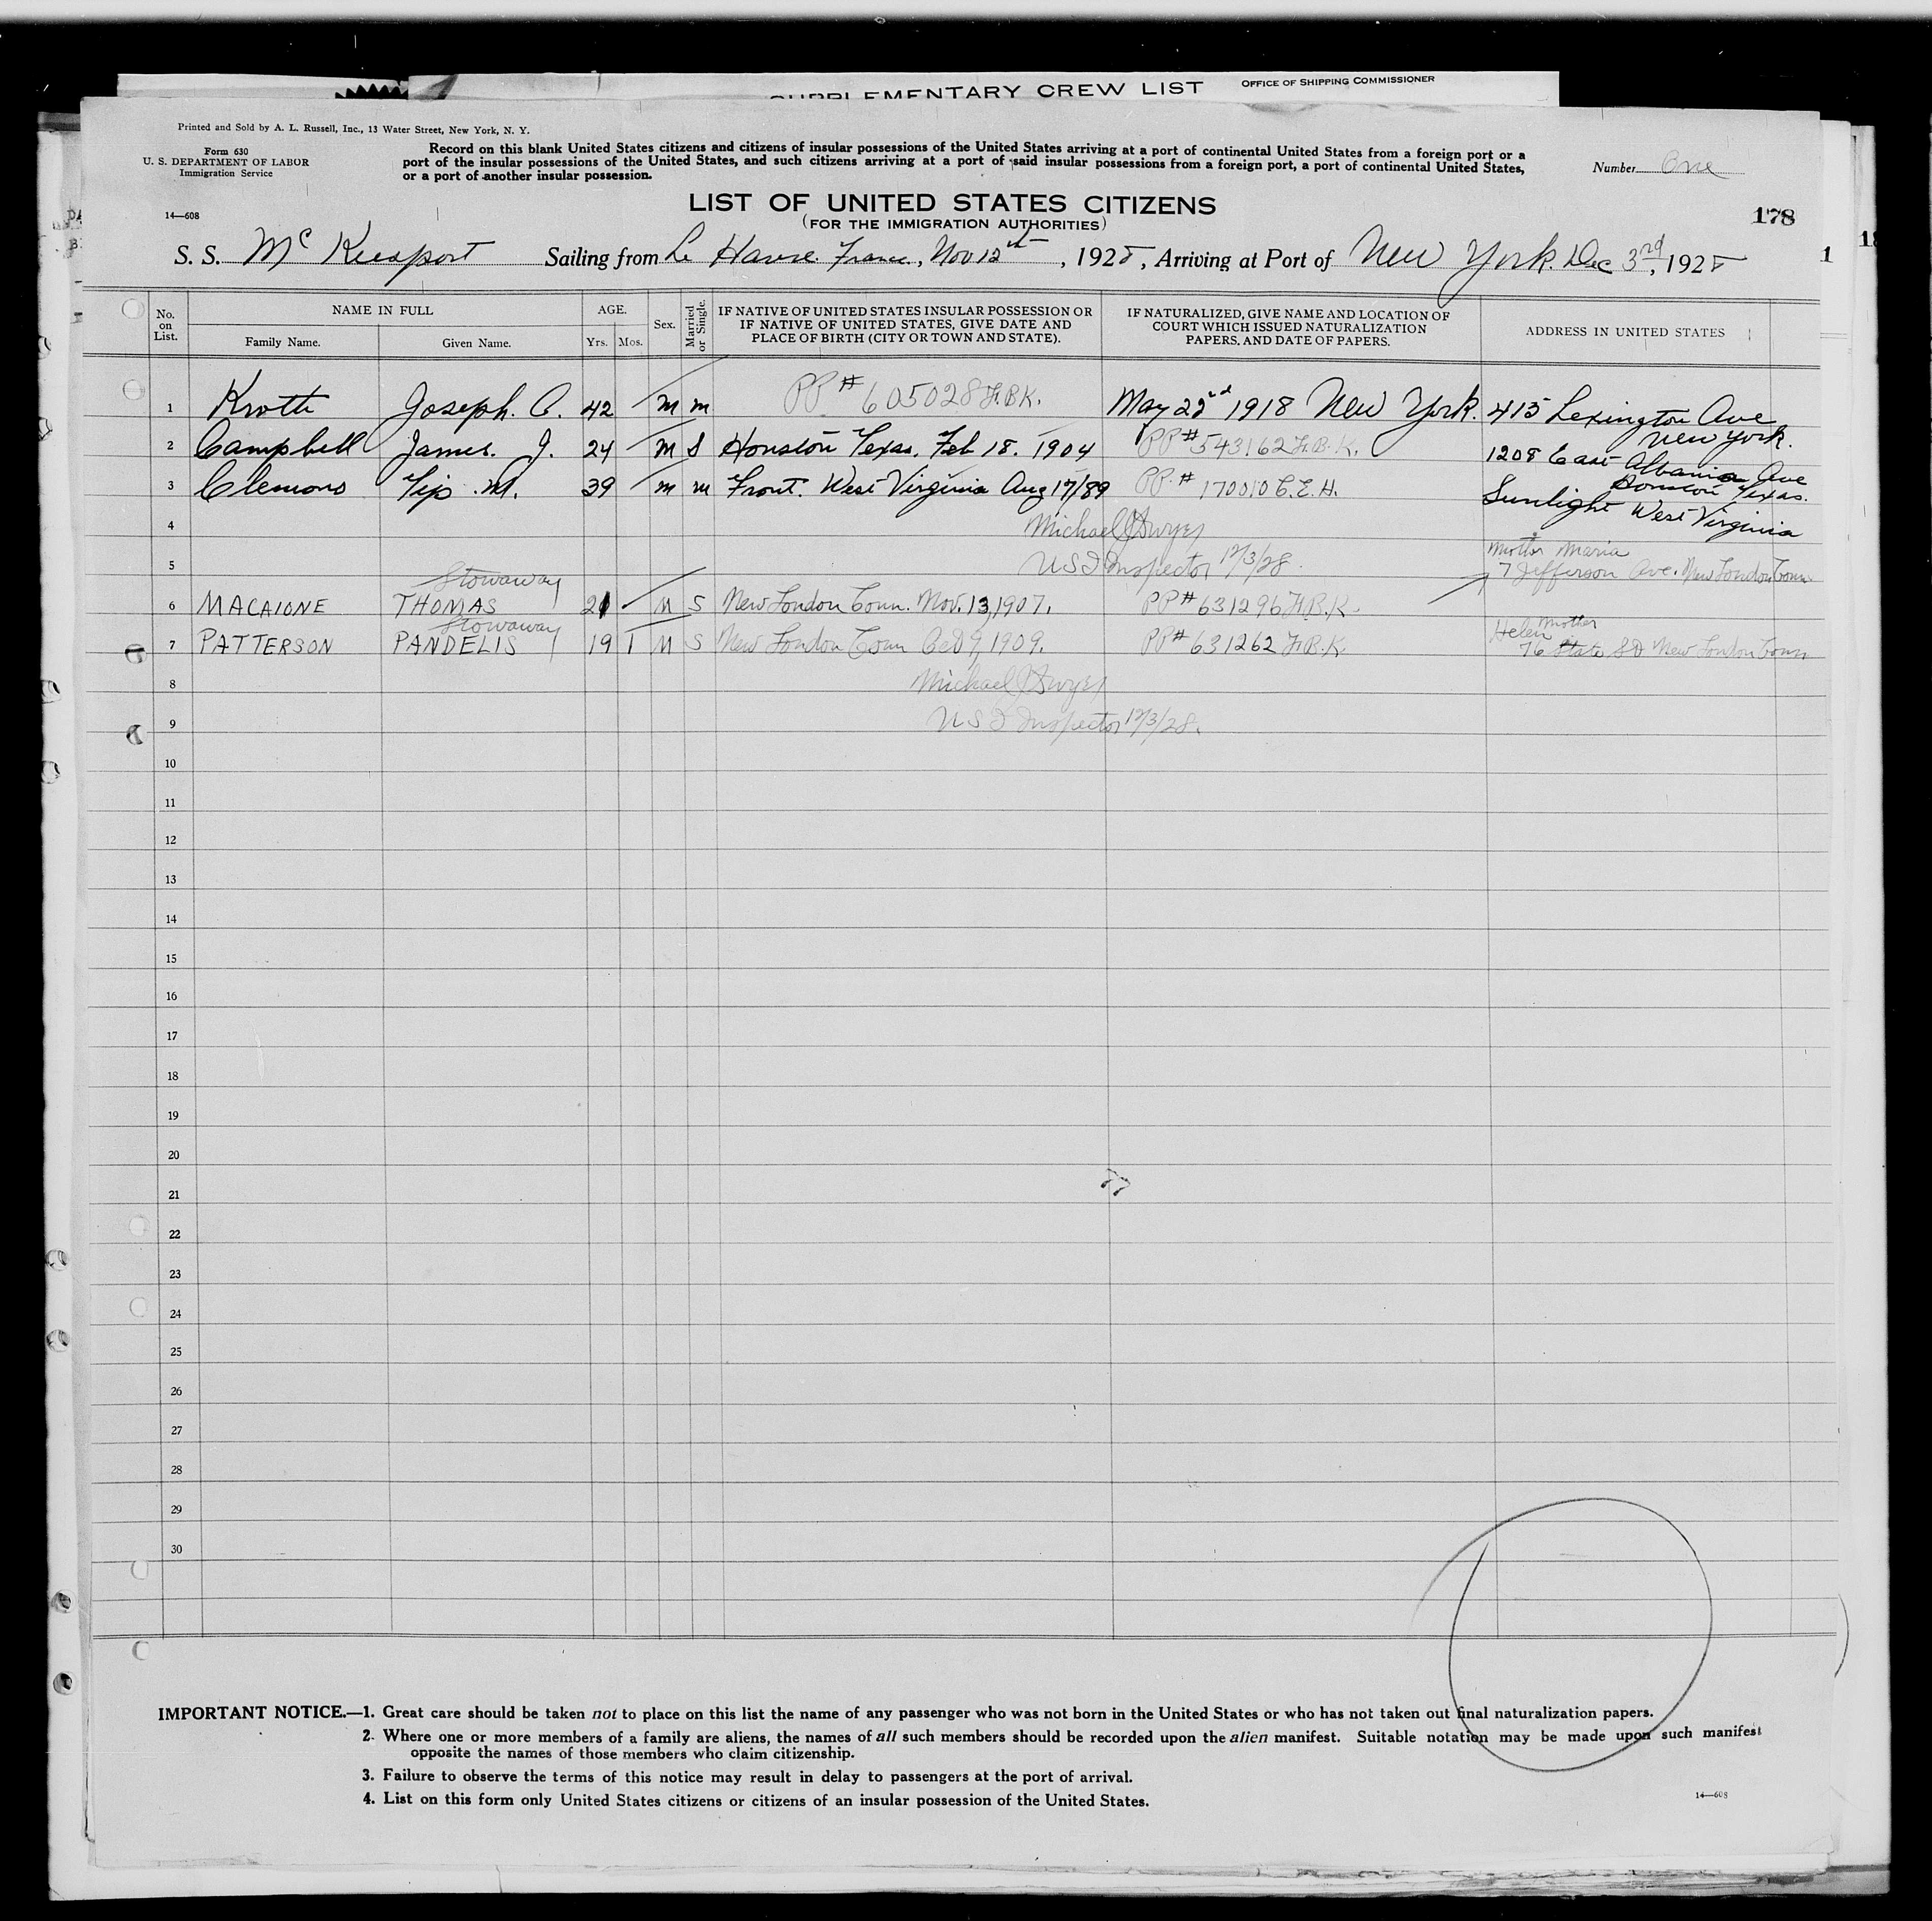 SUPPLEMENTARY CREW LIST OFFICE OF SHIPPING COMMISSIONER
Printed and Sold by A. L. Russell, Inc., 13 Water Street, New York, N. Y.
Form 630
U. S. DEPARTMENT OF LABOR
Immigration Service
Record on this blank United States citizens and citizens of insular possessions of the United States arriving at a port of continental United States from a foreign port or a
port of the insular possessions of the United States, and such citizens arriving at a port of said insular possessions from a foreign port, a port of continental United States,
or a port of another insular possession.
Number One
LIST OF UNITED STATES CITIZENS
(FOR THE IMMIGRATION AUTHORITIES)
14—608
178
S. S. Mc Keesport Sailing from Le Havre. France, Nov 12th, 1928, Arriving at Port of New York. Dec 3rd, 1928
No. on List. NAME IN FULL AGE. Sex. Married or Single. IF NATIVE OF UNITED STATES INSULAR POSSESSION OR IF NATIVE OF UNITED STATES, GIVE DATE AND PLACE OF BIRTH (CITY OR TOWN AND STATE). IF NATURALIZED, GIVE NAME AND LOCATION OF COURT WHICH ISSUED NATURALIZATION PAPERS, AND DATE OF PAPERS. ADDRESS IN UNITED STATES
Family Name. Given Name. Yrs. Mos.
1 Krotti Joseph. C. 42 m m PP # 605028 F.B.K. May 22nd 1918 New York. 415 Lexington Ave
New York.
2 Campbell James. J. 24 m S Houston Texas. Feb 18. 1904 PP# 543162 F.B.K. 1208 East Albania Ave
Houston Texas.
3 Clemons Tip. M. 39 m m Frost. West Virginia Aug 17/89 PP. # 170010 C.E.H. Sunlight West Virginia
4 Michael J Dwyer
5 U S I Inspector 12/3/28.
Mother Maria
7 Jefferson Ave. New London Conn
Stowaway
6 MACAIONE THOMAS 21 M S New London Conn. Nov. 13, 1907. PP# 631296 F.B.K.
Stowaway
7 PATTERSON PANDELIS 19 1 M S New London Conn Oct 9, 1909. PP# 631262 F.B.K.
Helen Mother
76 State St New London Conn
8 Michael J Dwyer
9 U S I Inspector 12/3/28.
10
11
12
13
14
15
16
17
18
19
20
21
22
23
24
25
26
27
28
29
30
IMPORTANT NOTICE.—1. Great care should be taken not to place on this list the name of any passenger who was not born in the United States or who has not taken out final naturalization papers.
2. Where one or more members of a family are aliens, the names of all such members should be recorded upon the alien manifest. Suitable notation may be made upon such manifest
opposite the names of those members who claim citizenship.
3. Failure to observe the terms of this notice may result in delay to passengers at the port of arrival.
4. List on this form only United States citizens or citizens of an insular possession of the United States.
14—608